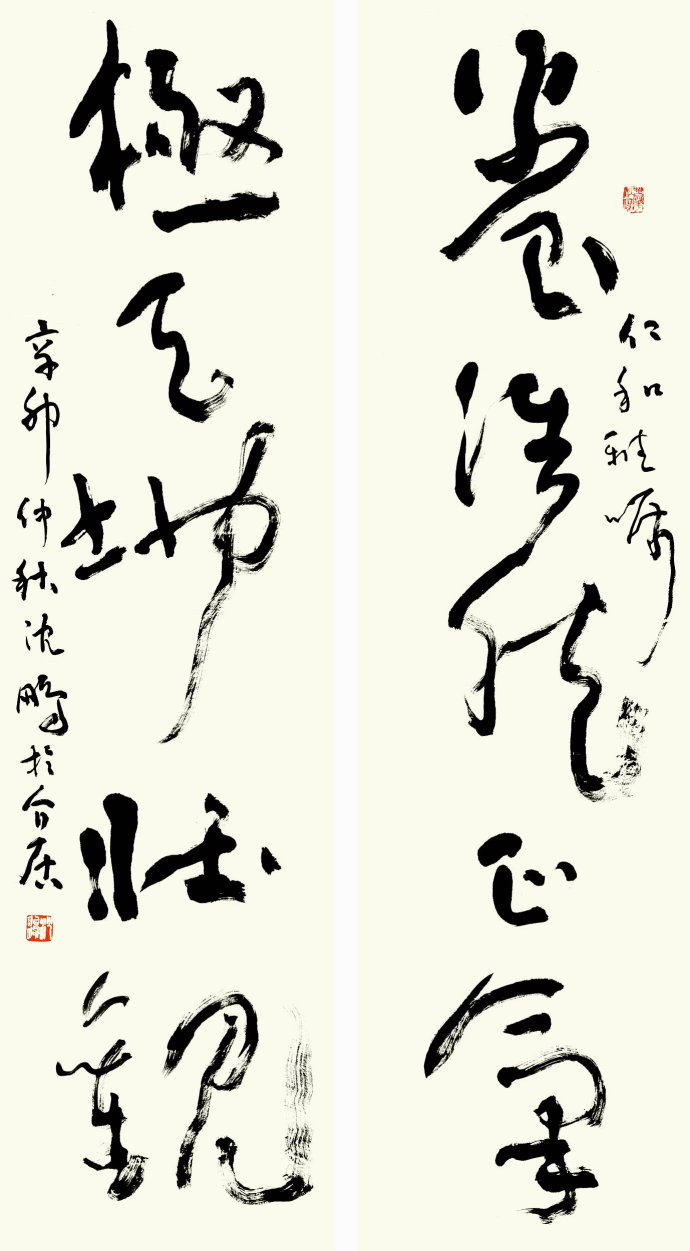 養浩然正氣
仁和雅囑
極天地壯觀
辛卯仲秋沈鵬於介居